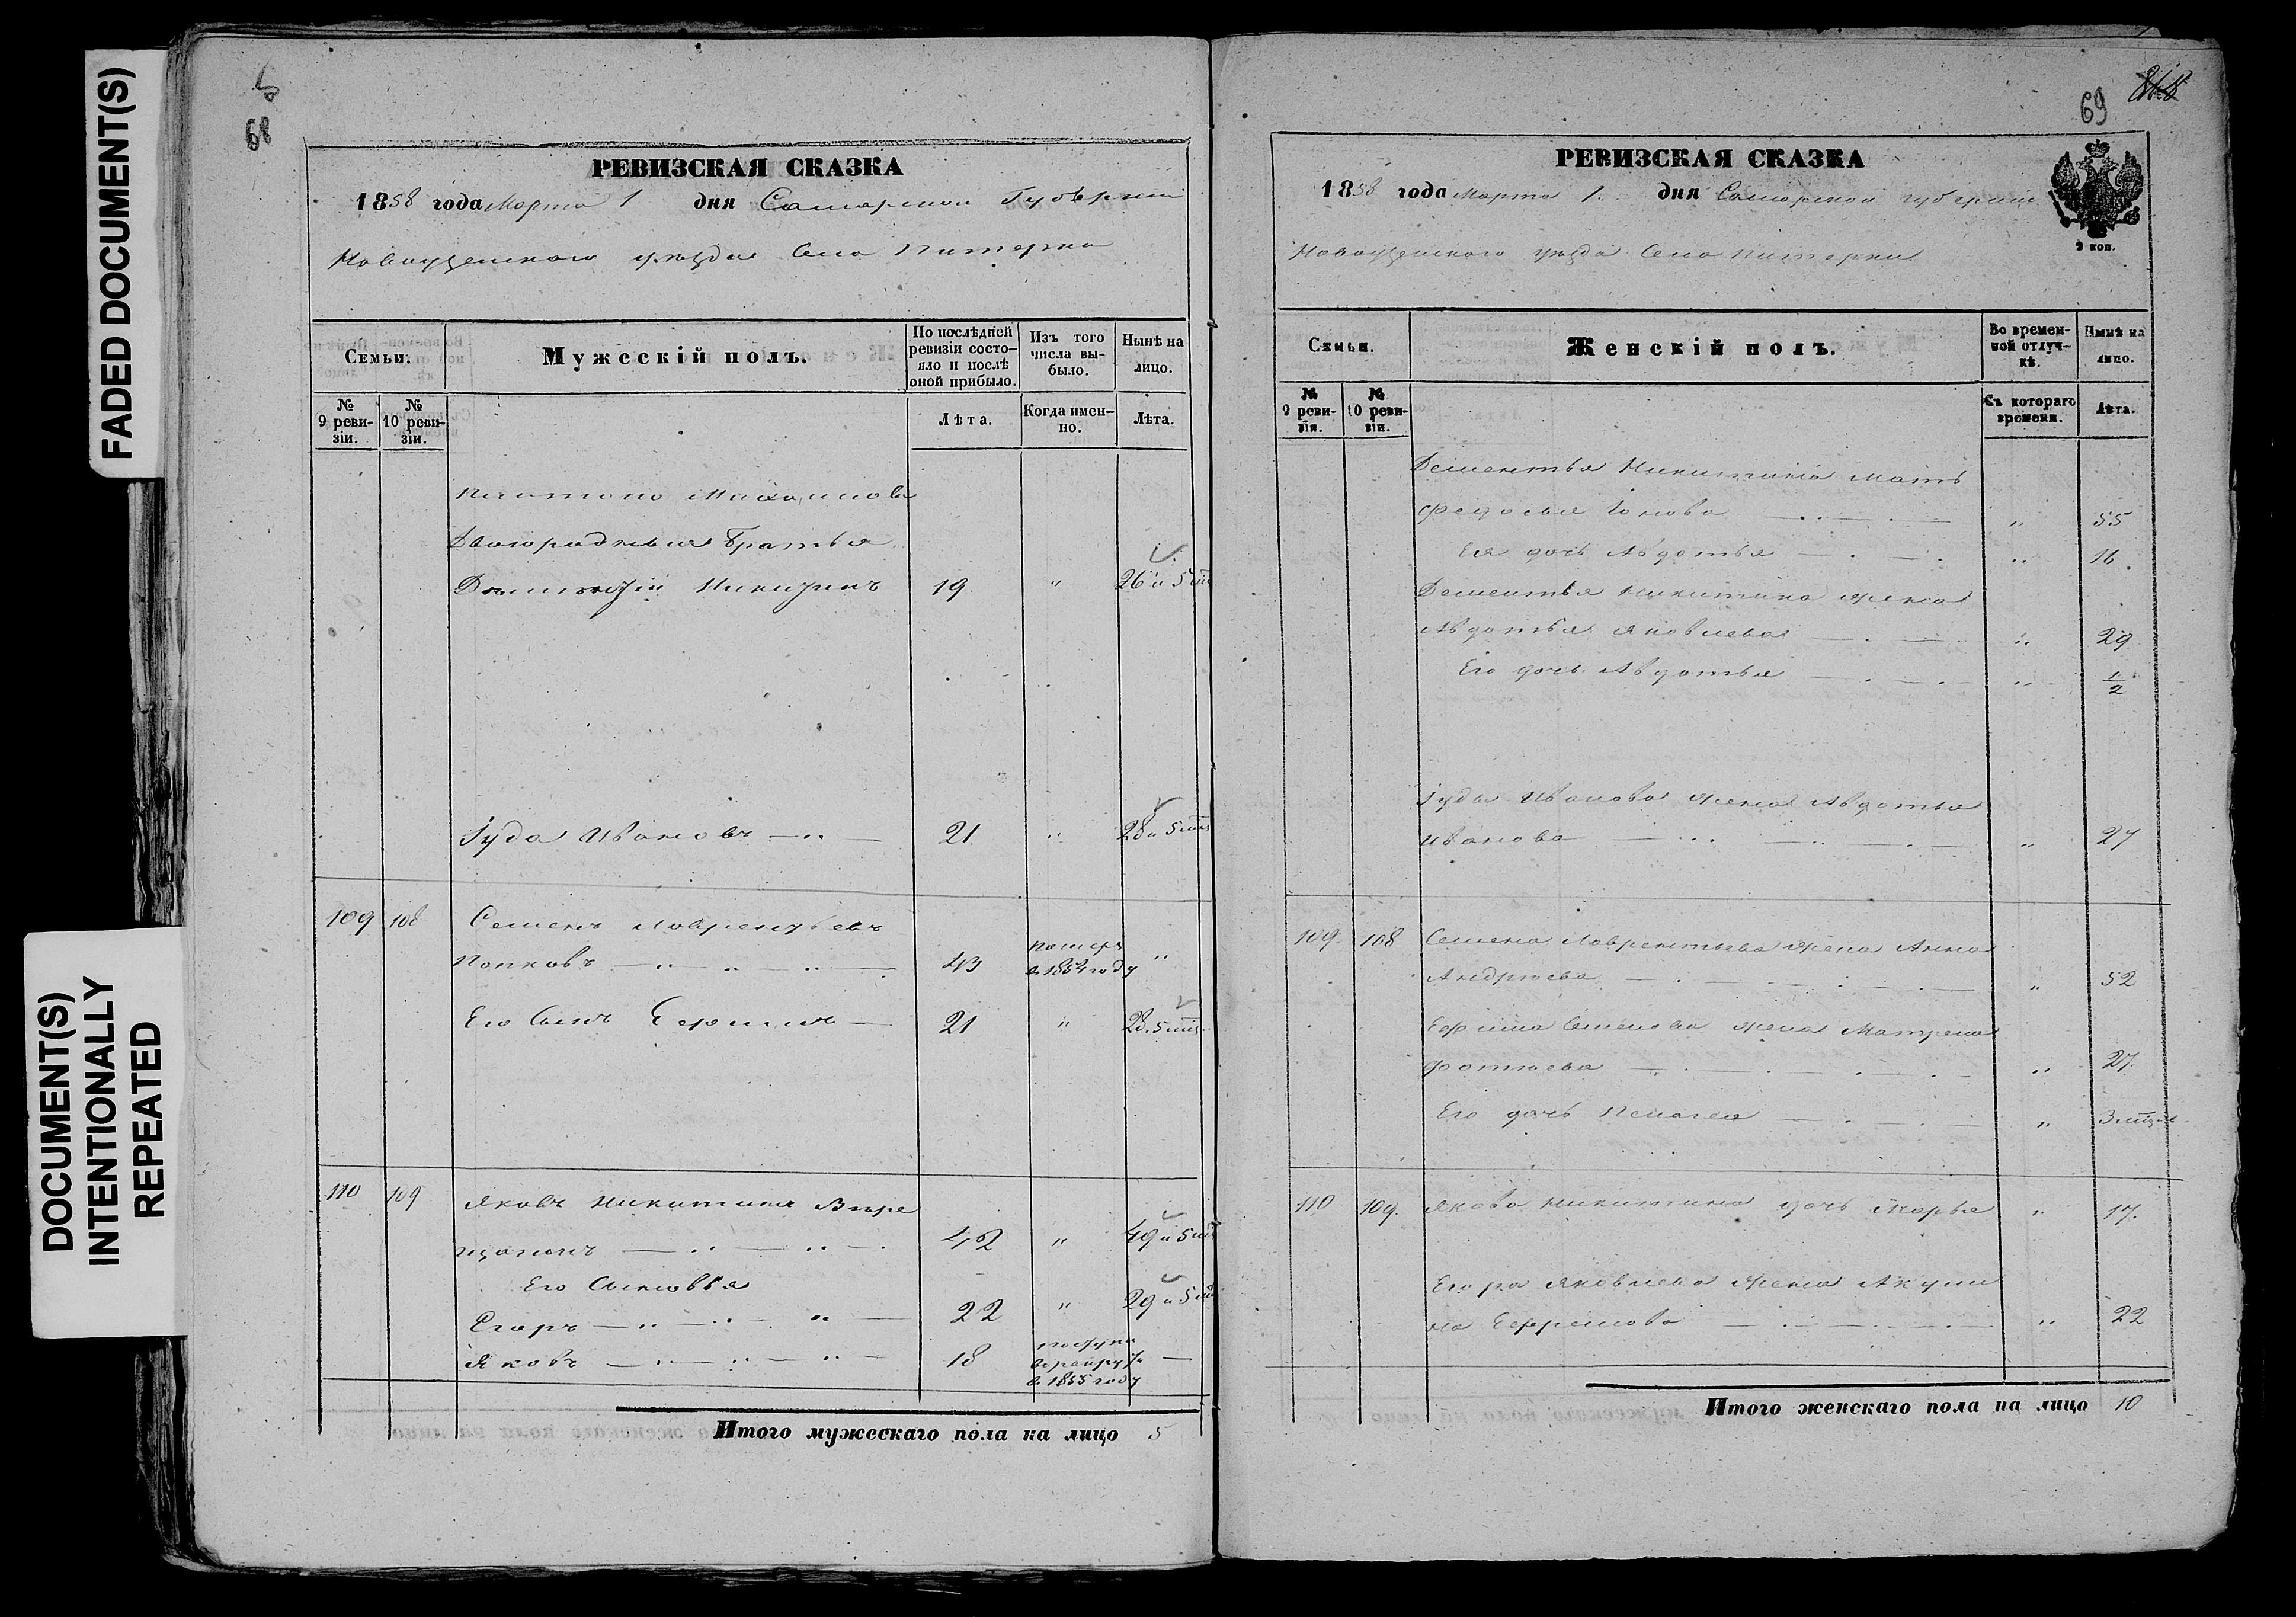 FADED DOCUMENT(S)
DOCUMENT(S)
INTENTIONALLY
REPEATED
68
РЕВИЗСКАЯ СКАЗКА
1858 года Марта 1 дня Самарской Губернии
Новоузенского уезда Села Питерки
Семьи.
Мужескій полъ.
По послѣдней ревизіи состо-
яло и послѣ оной прибыло.
Изъ того числа вы-
было.
Нынѣ на лицо.
№ 9 реви-
зіи.
№ 10 реви-
зіи.
Лѣта.
Когда имен-
но.
Лѣта.
Двоюродныя Братья
Дементій Никитинъ 19 " 26 и 5 мц
Іуда Ивановъ 21 " 28 и 5 мц
109 108 Семенъ Лаврентьевъ
Попковъ 43 в 1854 году "
Его Сынъ Ефимъ 21 " 28. 5 мц
110 109 Яковъ Никитинъ
42 " 49 и 5 мц
Его Сыновья
Егоръ 22 " 29 и 5 мц
Яковъ 18 в рекруты —
в 1855 году
Итого мужескаго пола на лицо 5
69
РЕВИЗСКАЯ СКАЗКА
1858 года Марта 1. дня Самарской губернии
2 коп.
Новоузенского уезда Села Питерки
Семьи.
Женскій полъ.
Во времен-
ной отлуч-
кѣ.
Нынѣ на лицо.
№ 9 реви-
зіи.
№ 10 реви-
зіи.
Съ котораго времени.
Лѣта.
Дементья Никитина Мать
Федосья Іонова " 55
Ея дочь Авдотья " 16
Дементья Никитина жена
Авдотья Яковлева " 29
Его дочь Авдотья " 1/2
Іуды Иванова жена Авдотья
Иванова " 27
109. 108 Семена Лаврентьева жена Анна
Андреева " 52
Ефима Семенова жена Матрена
Фотеева " 27.
Его дочь Пелагея " 3 мц
110 109. Якова Никитина дочь Марья " 17.
Егора Яковлева жена Акули
на Ефремова " 22
Итого женскаго пола на лицо 10